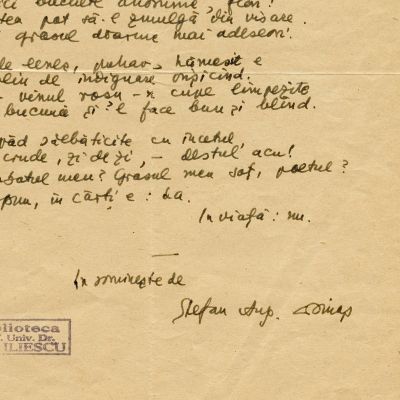 bucate anonime, flori
pot să-l zmulgă din visare.
grasul doarme mai adeseori.
lenes, pahar, hămesit e
plin de indignare
vinul roșu-n cupe limpezite
bucură și-l face bun și blînd.
văd sălbăticite cu încetul,
crude, zi de zi, – destul, acu!
meu? Grasul meu soț, poetul?
în cărți e: da.
In viață: nu.
În românește de
Ștefan Aug. Doinaș
blioteca
Univ. Dr.
ILIESCU